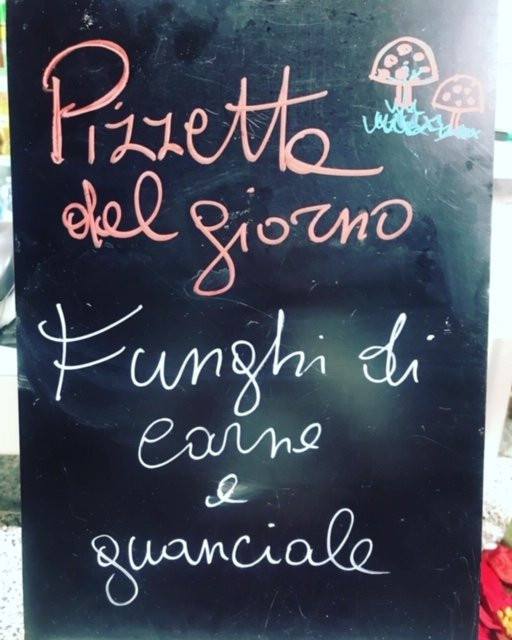 Pizzetta
del giorno
Funghi di
carne
e
guanciale